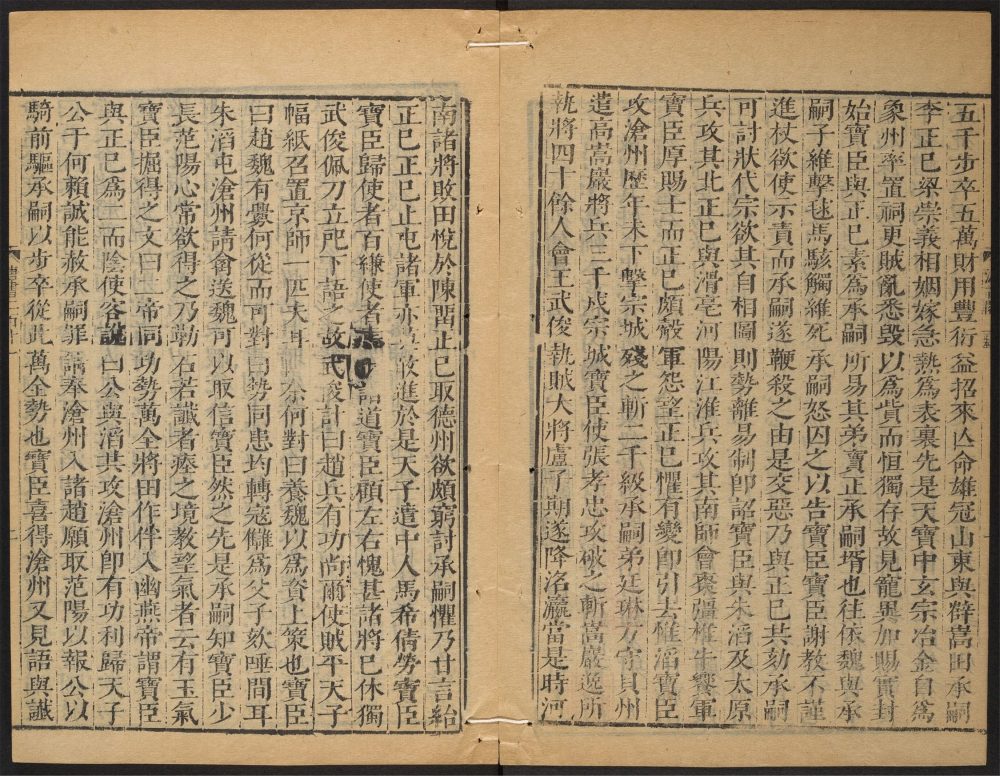 五千步卒五萬財用豐衍益招來亡命雄冠山東與薛嵩田承嗣
李正巳梁崇義相姻嫁急熱爲表裏先是天寶中玄宗冶金自爲
象州率置祠更賊亂悉毀以爲貲而恒獨存故見寵異加賜實封
始寶臣與正巳素爲承嗣所易其弟寶正承嗣壻也往依魏與承
嗣子維擊毬馬駭觸維死承嗣怒囚之以告寶臣寶臣謝教不謹
進杖欲使示責而承嗣遂鞭殺之由是交惡乃與正巳共劾承嗣
可討狀代宗欲其自相圖則勢離易制卽詔寶臣與朱滔及太原
兵攻其北正巳與滑亳河陽江淮兵攻其南師會棗彊椎牛饗軍
寶臣厚賜士而正巳頗觳軍怨望正巳懼有變卽引去惟滔寶臣
攻滄州歷年未下擊宗城殘之斬二千級承嗣弟廷琳方守貝州
遣高嵩巖將兵三千戍宗城寶臣使張孝忠攻破之斬嵩巖逸所
執將四十餘人會王武俊執賊大將盧子期遂降洺瀛當是時河
南諸將敗田悅於陳留正巳取德州欲頗窮討承嗣懼乃甘言紿
正巳正巳止屯諸軍亦敢進於是天子遣中人馬希倩勞寶臣
寶臣歸使者百縑使者道寶臣顧左右愧甚諸將巳休獨
武俊佩刀立戺下語之故武俊計曰趙兵有功尚爾使賊平天子
幅紙召置京師一匹夫耳奈何對曰養魏以爲資上策也寶臣
曰趙魏有釁何從而可對曰勢同患均轉寇讎爲父子欬唾間耳
朱滔屯滄州請禽送魏可以取信寶臣然之先是承嗣知寶臣少
長范陽心常欲得之乃勒石若讖者瘞之境教望氣者云有玉氣
寶臣掘得之文曰二帝同功勢萬全將田作伴入幽燕帝謂寶臣
與正巳爲二而陰使客說曰公與滔共攻滄州卽有功利歸天子
公于何賴誠能赦承嗣罪請奉滄州入諸趙願取范陽以報公以
騎前驅承嗣以步卒從此萬全勢也寶臣喜得滄州又見語與讖